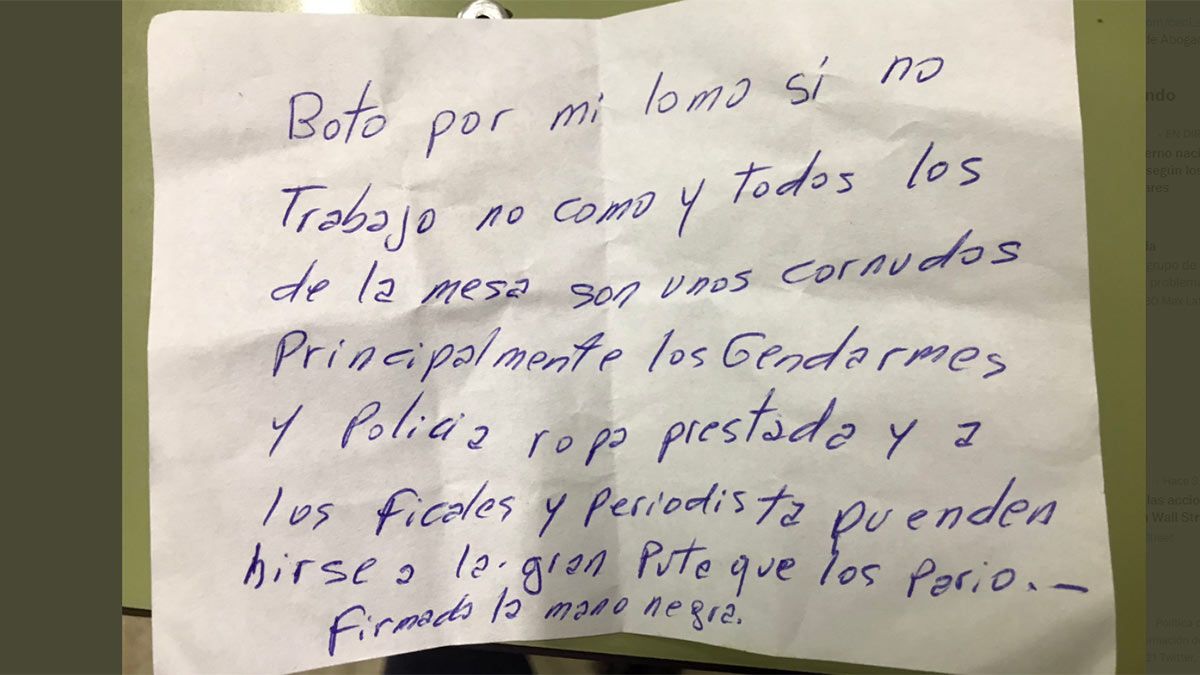 Boto por mi lomo si no
Trabajo no como y todos los
de la mesa son unos cornudos
Principalmente los Gendarmes
y Policia ropa prestada y a
los ficales y Periodista puenden
hirse a la. gran Pute que los Pario. —
Firmado la mano negra.